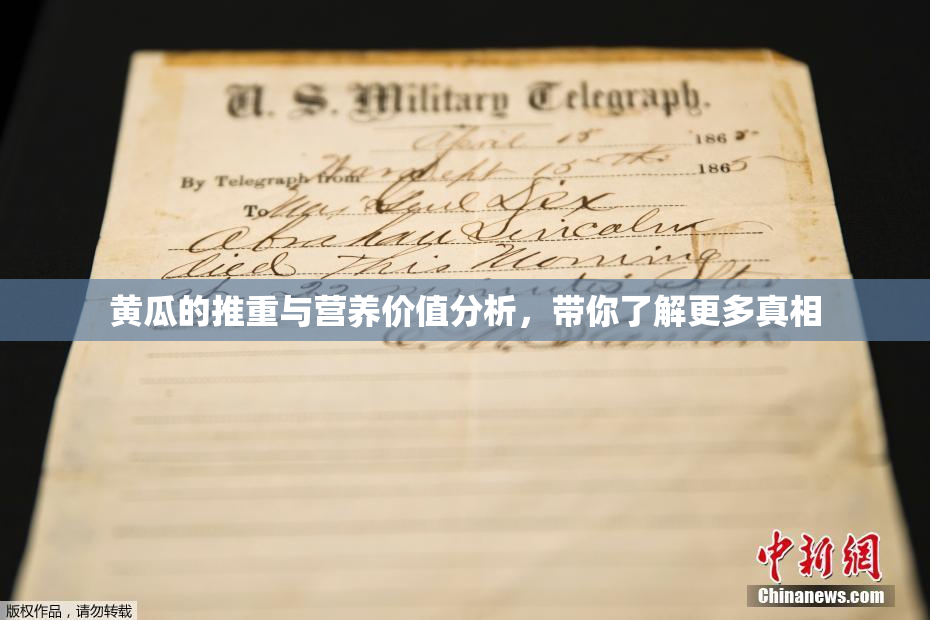 U. S. Military Telegraph.
April 15 1865
By Telegraph from War Dept 15th 1865
To Maj Genl Dix
Abraham Lincoln
died This Morning
at 22 minutes after
黄瓜的推重与营养价值分析，带你了解更多真相
E. M. Stanton
中新網
Chinanews.com
版权作品，请勿转载